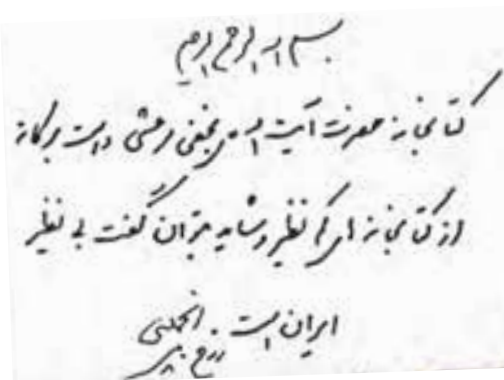 بسم الله الرحمن الرحیم
کتابخانه حضرت آیت الله نجفی مرعشی دامت برکاته
از کتابخانه های کم نظیر و شاید بتوان گفت بی نظیر
ایران است